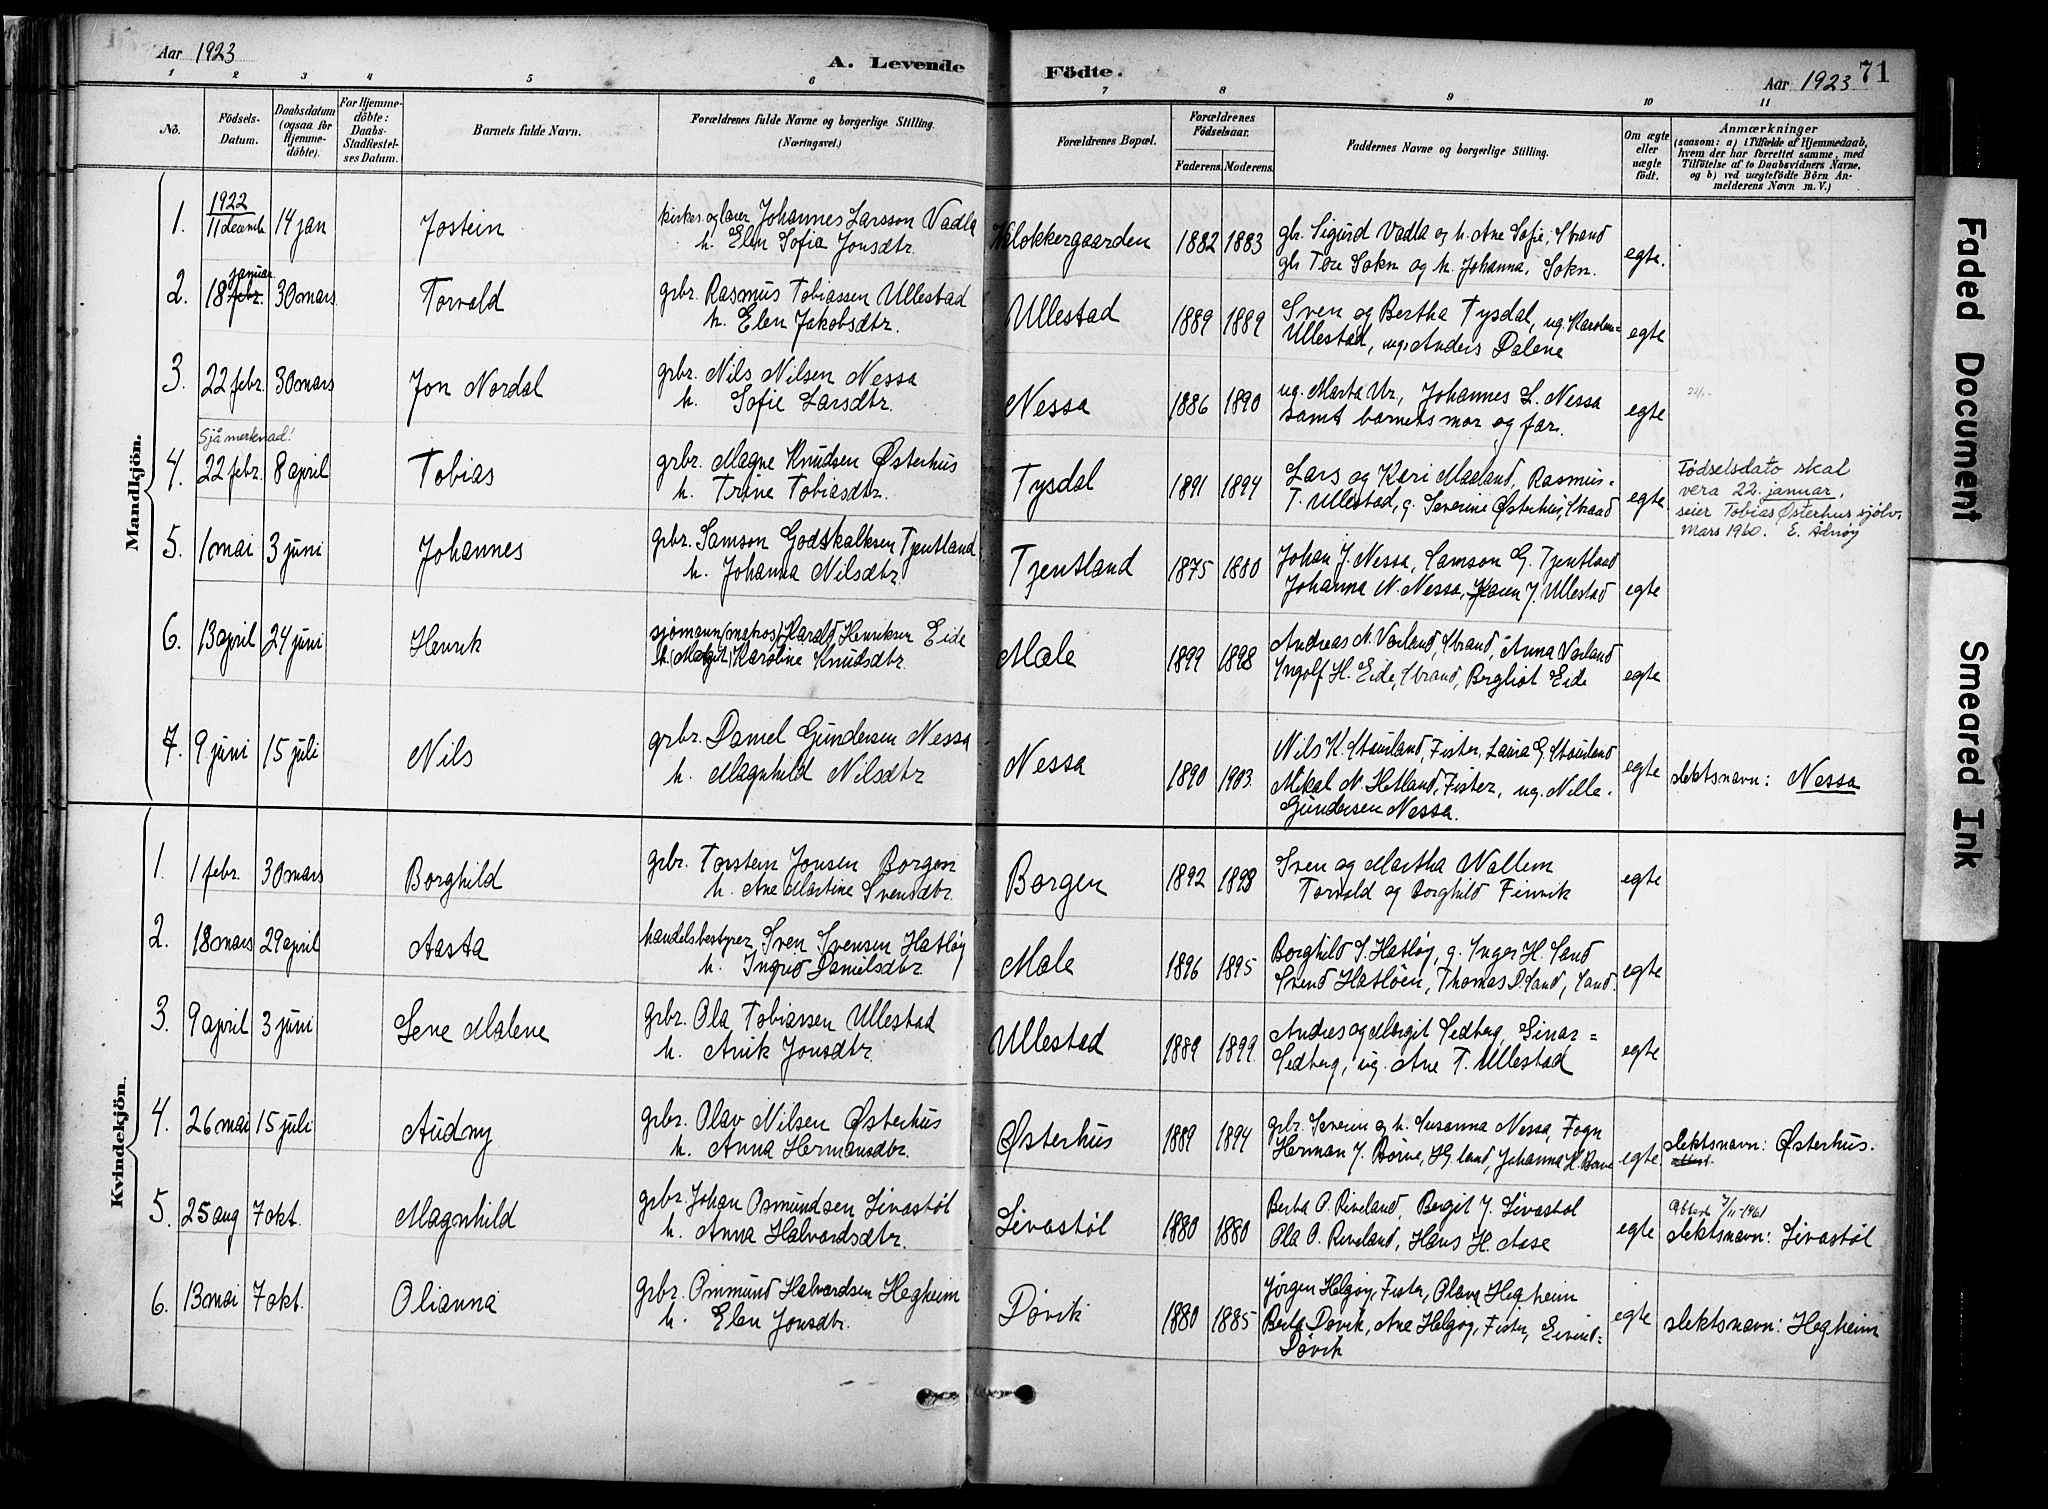 Aar 1923
A. Levende Födte.
Aar 1923 71
1 2 3 4 5 6 7 8 9 10 11
No.
Födsels-Datum.
Daabsdatum (ogsaa for Hjemme-döbte).
For Hjemme-döbte: Daabs-Stadfæstel-ses Datum.
Barnets fulde Navn.
Forældrenes fulde Navne og borgerlige Stilling.
(Næringsvei.)
Forældrenes Bopæl.
Forældrenes Födselsaar.
Faderens. Moderens.
Faddernes Navne og borgerlige Stilling.
Om ægte eller uægte födt.
Anmærkninger
(saasom: a) i Tilfælde af Hjemmedaab,
hvem der har forrettet samme, med
Tilföielse af to Daabsvidners Navne,
og b) ved uægtefödte Börn An-
melderens Navn m. V.)
Mandkjön.
1922
1. 11 decemb 14 jan Jostein kirkes. og lærer Johannes Larsson Vadla
h. Elen Sofia Jonsdtr.
Klokkergaarden 1882 1883 gbr. Sigurd Vadla og h. Ane Sofie, Strand
gbr Tore Sokn og h. Johanna, Sokn. egte.
januar
2. 18 febr. 30 mars Torvald grbr. Rasmus Tobiassen Ullestad
h. Elen Jakobsdtr.
Ullestad 1889 1889 Sven og Bertha Tysdal, ug. Karoline
Ullestad, ug. Anders Dalene egte
3. 22 febr. 30 mars Jon Nordal grbr. Nils Nilsen Nessa
h. Sofie Larsdtr.
Nessa 1886 1890 ug. Marta Ur, Johannes L. Nessa
samt barnets mor og far. egte
Sjå merknad!
4. 22 febr. 8 april Tobias grbr. Magne Knudsen Østerhus
h. Trine Tobiasdtr.
Tysdal 1891 1894 Lars og Kari Maaland, Rasmus
T. Ullestad, g. Severine Østerhus, Strand egte
Fødselsdato skal
vera 22. januar,
seier Tobias Østerhus sjølv.
Mars 1960. E. Adnøy
5. 1 mai 3 juni Johannes grbr. Samson Godskalksen Tjentland
h. Johanna Nilsdtr.
Tjentland 1875 1880 Johan J. Nessa, Samson G. Tjentland
Johanna N. Nessa, Karen J. Ullestad egte
6. 13 april 24 juni Henrik sjømann (matros) Harald Henriksen Eide
h. (Margit) Karoline Knudsdtr.
Mæle 1899 1898 Andreas N. Vorland, Strand, Anna Vorland
Ingolf H. Eide, Strand, Bergliot Eide egte
7. 9 juni 15 juli Nils grbr. Daniel Gundersen Nessa
h. Magnhild Nilsdtr
Nessa 1890 1903. Nils K. Stousland, Fister, Laura G. Stousland
Mikal N. Hetland, Fister, ug. Nille
Gundersen Nessa. egte slektsnavn: Nessa
Kvindekjön.
1. 1 febr. 30 mars Borghild grbr. Torstein Jonsen Borgen
h. Ane Martine Svensdtr.
Borgen 1892 1898 Sven og Martha Wallem
Torvald og Borghild Finvik egte
2. 18 mars 29 april Aasta handelsbestyrer Sven Svensen Hatløy
h. Ingrid Danielsdtr
Mæle 1896 1895 Borghild S. Hatløy, g. Inger H. Sand
Svend Hatløen, Thomas D. Sand, Sand. egte
3. 9 april 3 juni Lene Malene grbr. Ola Tobiassen Ullestad
h. Anik Jonsdtr.
Ullestad 1889 1899. Andres og Margit Sedberg, Einar
Sedberg, ug. Ane T. Ullestad egte
4. 26 mai 15 juli Audny grbr. Olav Nilsen Østerhus
h. Anna Hermansdtr.
Østerhus 1889 1894 grbr. Severin og h. Susanna Nessa, Fogn
Herman J. Børve, Hj.land, Johanna H. Børve egte slektsnavn: Østerhus.
5. 25 aug 7 okt. Magnhild grbr. Johan Osmundsen Livastøl
h. Anna Halvardsdtr.
Livastøl 1880 1880 Berta O. Riveland, Bergit J. Livastøl
Ola O. Riveland, Hans H. Aase egte
Attest 7/11-1961
slektsnavn: Livastøl
6. 13 mai 7 okt. Olianna grbr. Ommund Halvardsen Hegheim
h. Elen Jonsdtr.
Døvik 1880 1885 Jørgen Helgøy, Fister, Olava Hegheim
Berta Døvik, Ane Helgøy, Fister, Eivind
Døvik egte slektsnavn: Hegheim
Faded Document
Smeared Ink